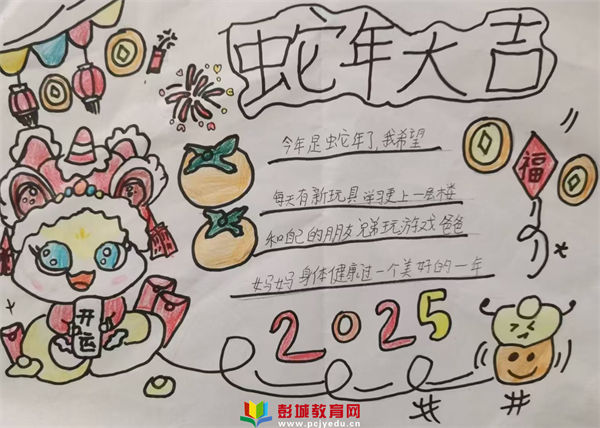 蛇年大吉
今年是蛇年了,我希望
每天有新玩具学习更上一层楼
和自己的朋友兄弟玩游戏爸爸
妈妈身体健康过一个美好的一年
福
开运
2025
彭城教育网
www.pcjyedu.cn